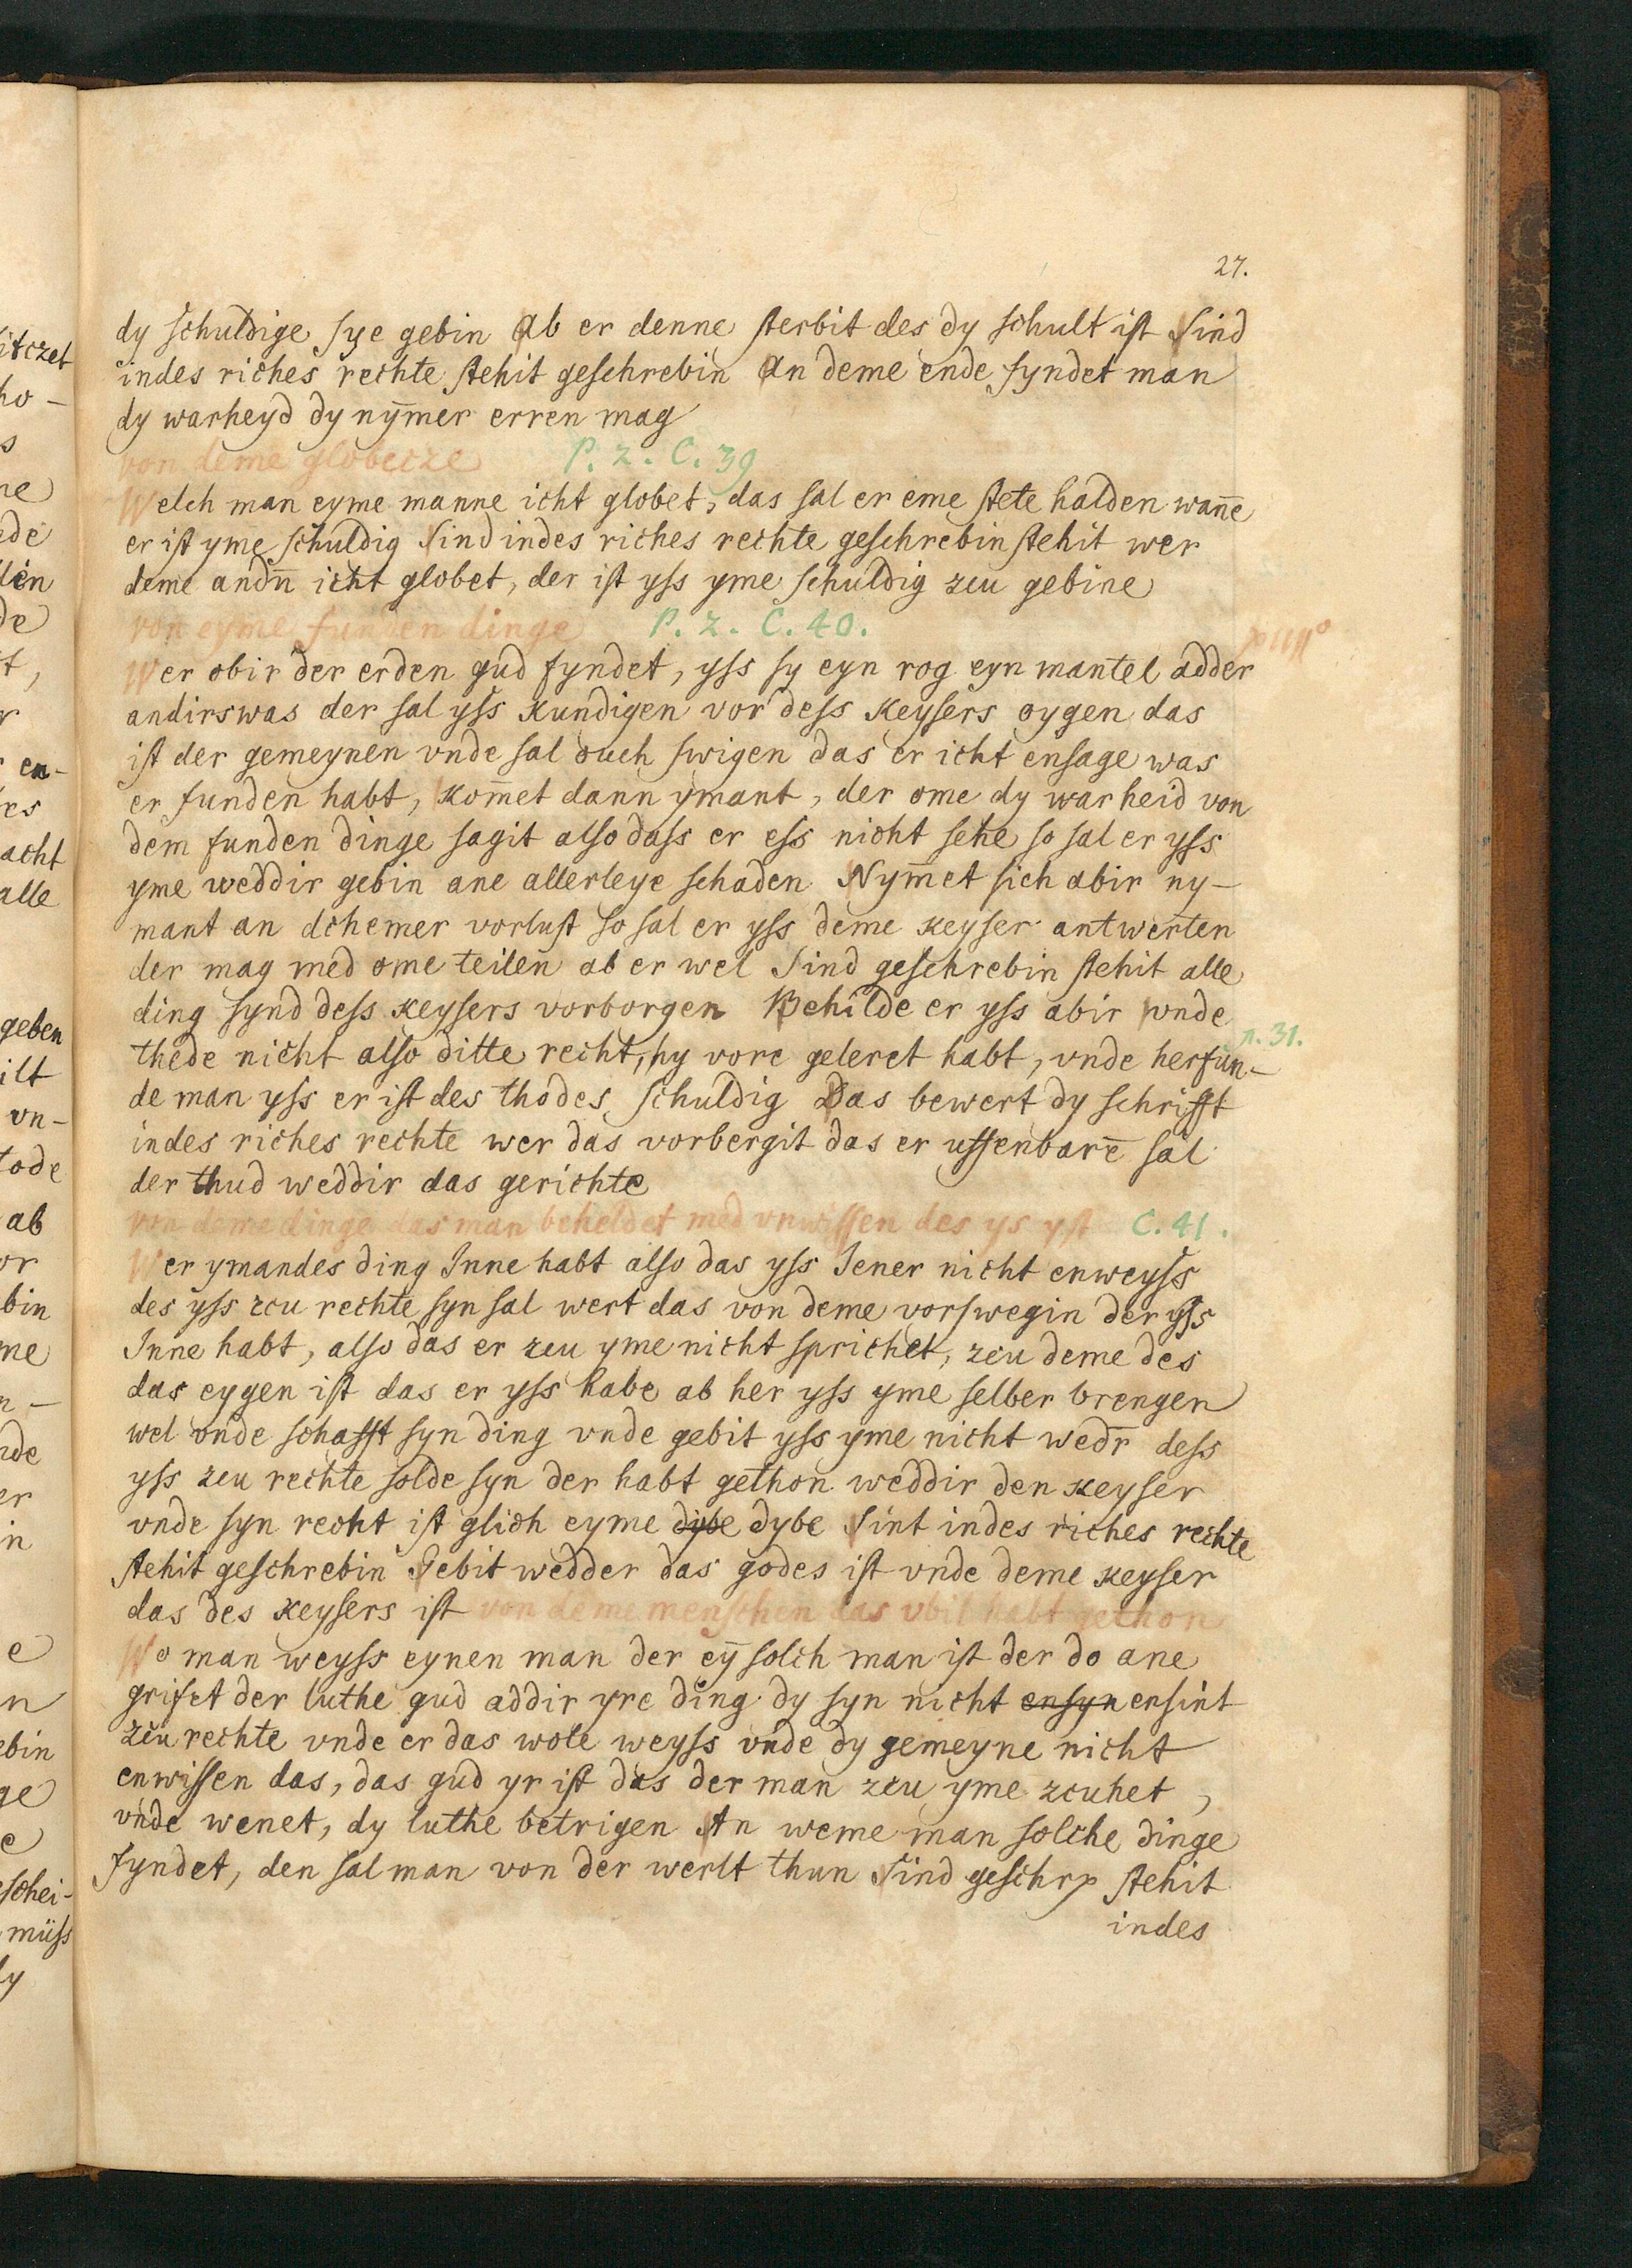 27.
dy schuldige sye gebin ab er denne sterbit des dy schult ist sind
indes riches rechte stehit geschrebin an deme ende fyndet man
dy warheyd dy nȳmer erren mag
von deme globecze P. 2. C. 39
Welch man eyme manne icht globet, das sal er eme stete halden wañe
er ist yme schuldig sind indes riches rechte geschrebin stehit wer
deme andn̄ icht globet, der ist yss yme schuldig zcu gebine
von eyme funden dinge P. 2. C. 40.
Wer obir der erden gud fyndet, yss sy eyn rog eyn mantel adder
andirswas der sal yss kundigen vor dess keysers oygen das
ist der gemeynen vnde sal ouch swigen das er icht ensage was
er funden habt, kom̄et dann ymant, der ome dy warheid von
dem funden dinge sagit also dass er ess nicht sehe so sal er yss
yme weddir gebin ane allerleye schaden Nym̄et sich abir ny-
mant an dchemer vorlust so sal er yss deme keyser antwerten
der mag med ome teilen ab er wel Sind geschrebin stehit alle
ding synd dess keysers vorborgen Behilde er yss abir vnde
n. 31.
thede nicht also ditte recht, hy vore geleret habt, vnde herfun-
de man yss er ist des thodes schuldig Das bewert dy schrifft
indes riches rechte wer das vorbergit das er uffenbarē sal
der thud weddir das gerichte
von deme dinge das man beheldet med vnwissen des ys yst C. 41.
Wer ymandes ding Inne habt also das yss Jener nicht enweyss
des yss zcu rechte syn sal wert das von deme vorswegin der yss
Inne habt, also das er zcu yme nicht sprichet, zcu deme des
das eygen ist das er yss habe ab her yss yme selber brengen
wel vnde schafft syn ding vnde gebit yss yme nicht wedr̄ dess
yss zcu rechte solde syn der habt gethon weddir den keyser
vnde syn recht ist glich eyme dybe dybe Sint indes riches rechte
stehit geschrebin Gebit wedder das godes ist vnde deme keyser
das des keysers ist von deme menschen das vbil habt gethon
Wo man weyss eynen man der eȳ solch man ist der do ane
grifet der luthe gud addir yre ding dy syn nicht ensyn ensint
zcu rechte vnde er das wole weyss vnde dy gemeyne nicht
enwissen das, das gud yr ist das der man zcu yme zcuhet,
vnde wenet, dy luthe betrigen An weme man solche dinge
fyndet, den sal man von der werlt thun Sind geschrp stehit
indes